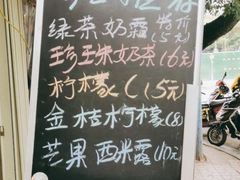 绿茶奶霜 特价15元
珍珠奶茶 16元
柠檬 (15元)
金桔柠檬 (18)
芒果西米露 10元